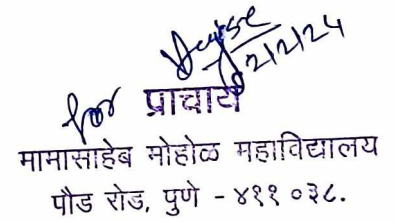 2/2/24
for प्राचार्य
मामासाहेब मोहोळ महाविद्यालय
पौड रोड, पुणे - ४११ ०३८.